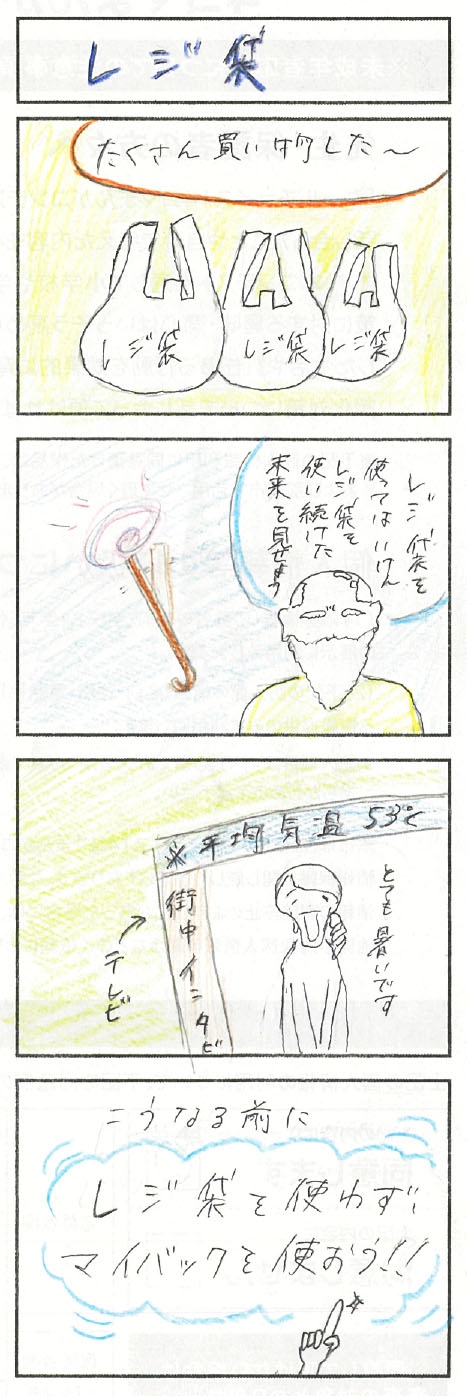 レジ袋
たくさん買い物した〜
レジ袋
レジ袋
レジ袋
レジ袋を
使ってはいけん
レジ袋を
使い続けた
未来を見せよう
※平均気温 53℃
とても暑いです
街中インタビ
テレビ
こうなる前に
レジ袋を使わず!
マイバックを使おう!!